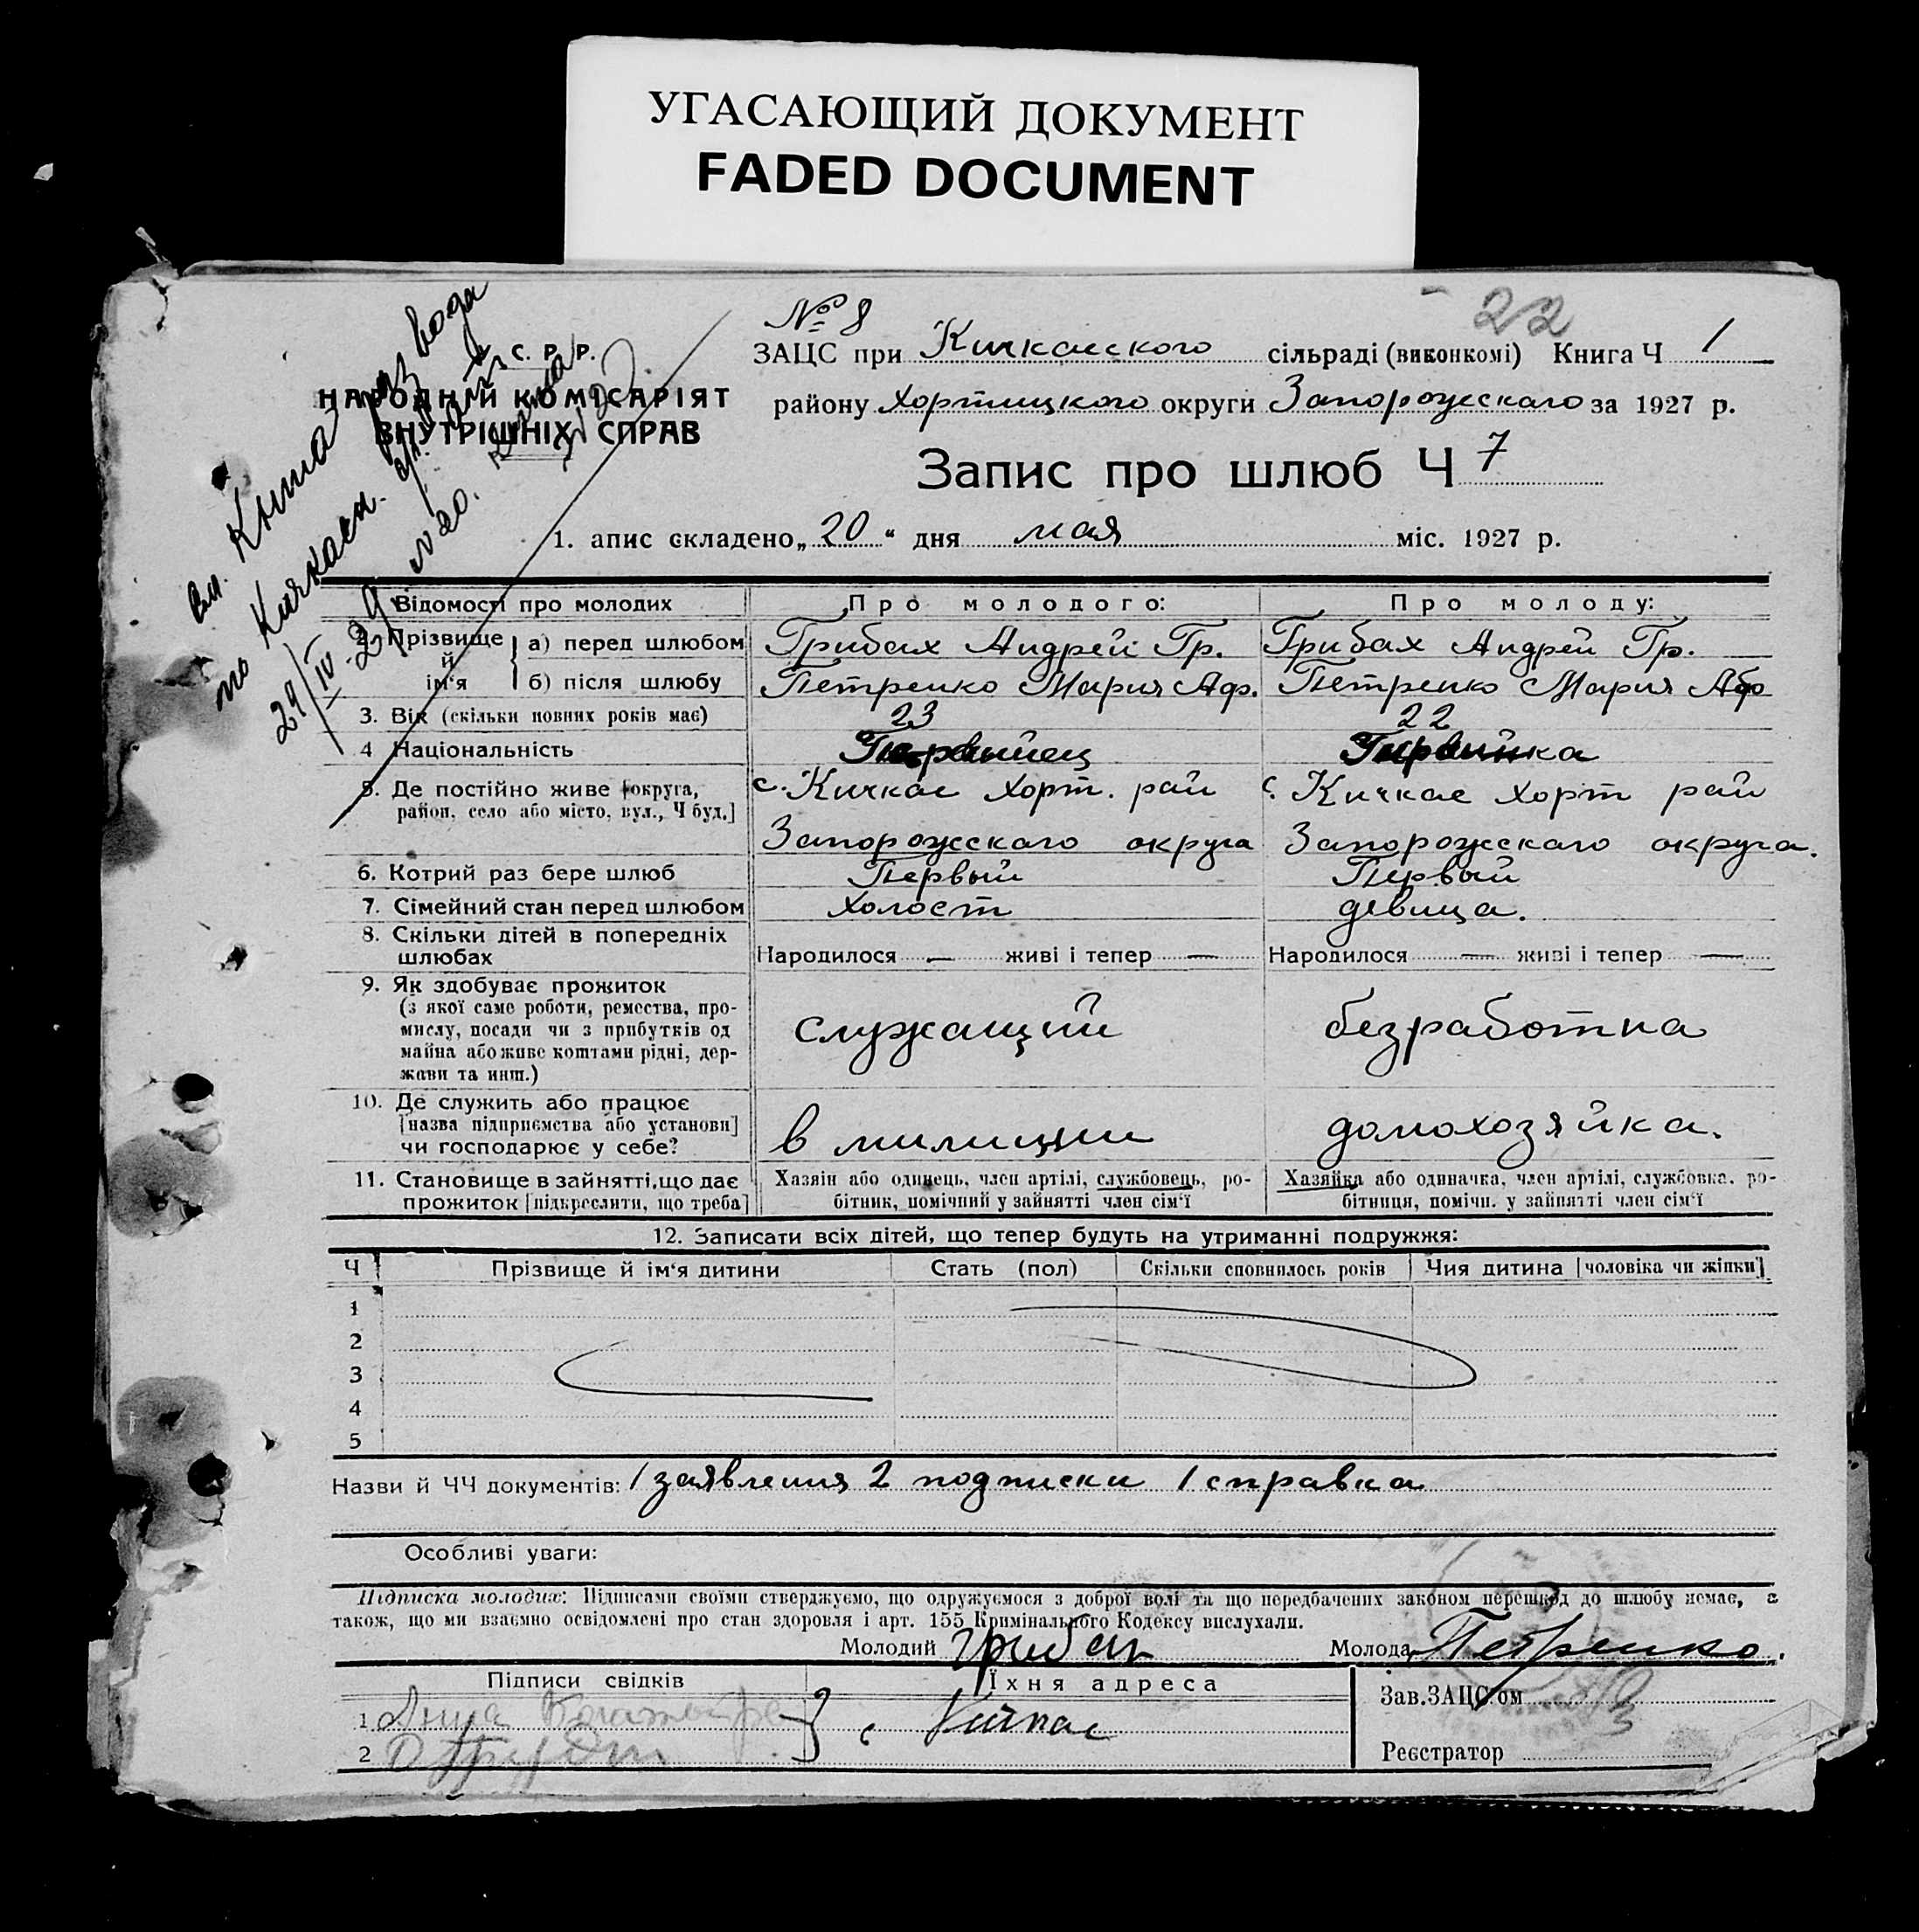 УГАСАЮЩИЙ ДОКУМЕНТ
FADED DOCUMENT
22
№ 8
У. С. Р. Р.
НАРОДНІЙ КОМІСАРІЯТ
ВНУТРІШНІХ СПРАВ
см. Книга развода
по Кичкасск.
29/IV-29
ЗАЦС при Кичкасского сільраді (виконкомі) Книга Ч 1
району Хортицкого округи Запорожскаго за 1927 р.
Запис про шлюб Ч 7
1. апис складено „20“ дня мая міс. 1927 р.
Відомості про молодих Про молодого: Про молоду:
2. Прізвище й ім‘я а) перед шлюбом Грибах Андрей Гр. Грибах Андрей Гр.
б) після шлюбу Петренко Мария Аф. Петренко Мария Аф
3. Вік (скільки повних років має) 23 22
4 Національність
5. Де постійно живе [округа, район, село або місто, вул., Ч буд.] с. Кичкас Хорт. рай с. Кичкас Хорт рай
Запорожскаго округа Запорожскаго округа.
6. Котрий раз бере шлюб Первый Первый
7. Сімейний стан перед шлюбом холост девица.
8. Скільки дітей в попередніх шлюбах Народилося — живі і тепер — Народилося — живі і тепер —
9. Як здобуває прожиток
(з якої саме роботи, ремества, про-
мислу, посади чи з прибутків од
майна або живе коштами рідні, дер-
жави та инш.) служащий безработна
10. Де служить або працює
[назва підприємства або установи]
чи господарює у себе? в милиции домохозяйка.
11. Становище в зайнятті, що дає
прожиток [підкреслити, що треба]
Хазяін або одинець, член артілі, службовець, ро-
бітник, помічний у зайнятті член сім‘ї
Хазяйка або одиначка, член артілі, службовка, ро-
бітниця, помічн. у зайнятті член сім‘ї
12. Записати всіх дітей, що тепер будуть на утриманні подружжя:
Ч Прізвище й ім‘я дитини Стать (пол) Скільки сповнилось років Чия дитина [чоловіка чи жінки]
1
2
3
4
5
Назви й ЧЧ документів: 1 заявления 2 подписки 1 справка
Особливі уваги:
Підписка молодих: Підписами своїми стверджуємо, що одружуємося з доброї волі та що передбачених законом перешкод до шлюбу немає, а
також, що ми взаємно освідомлені про стан здоровля і арт. 155 Кримінального Кодексу вислухали.
Молодий Грибах Молода Петренко.
Підписи свідків Їхня адреса Зав.ЗАЦС‘ом
1 Анна
2
с Кичкас
Реєстратор